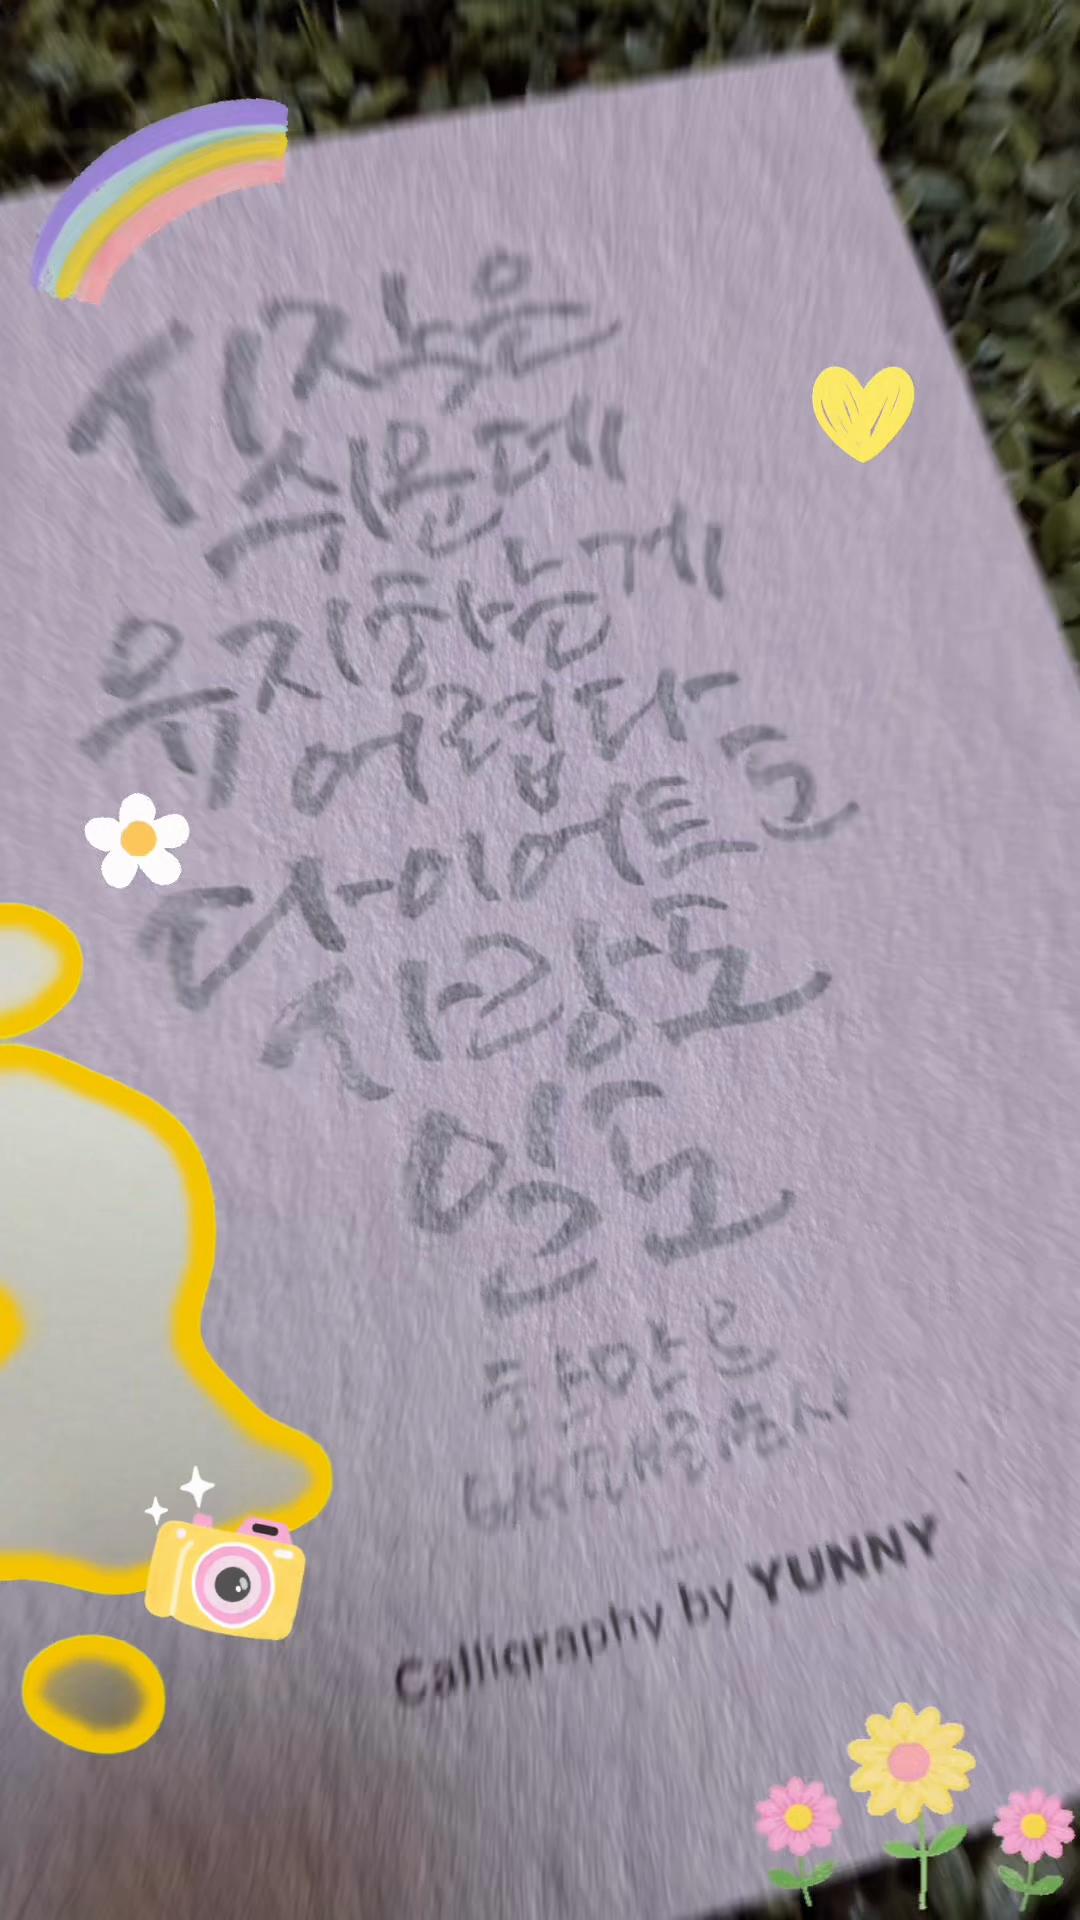 시작은
쉬운데
유지하는게
어렵다
다이어트도
사랑도
일도
Calligraphy by YUNNY